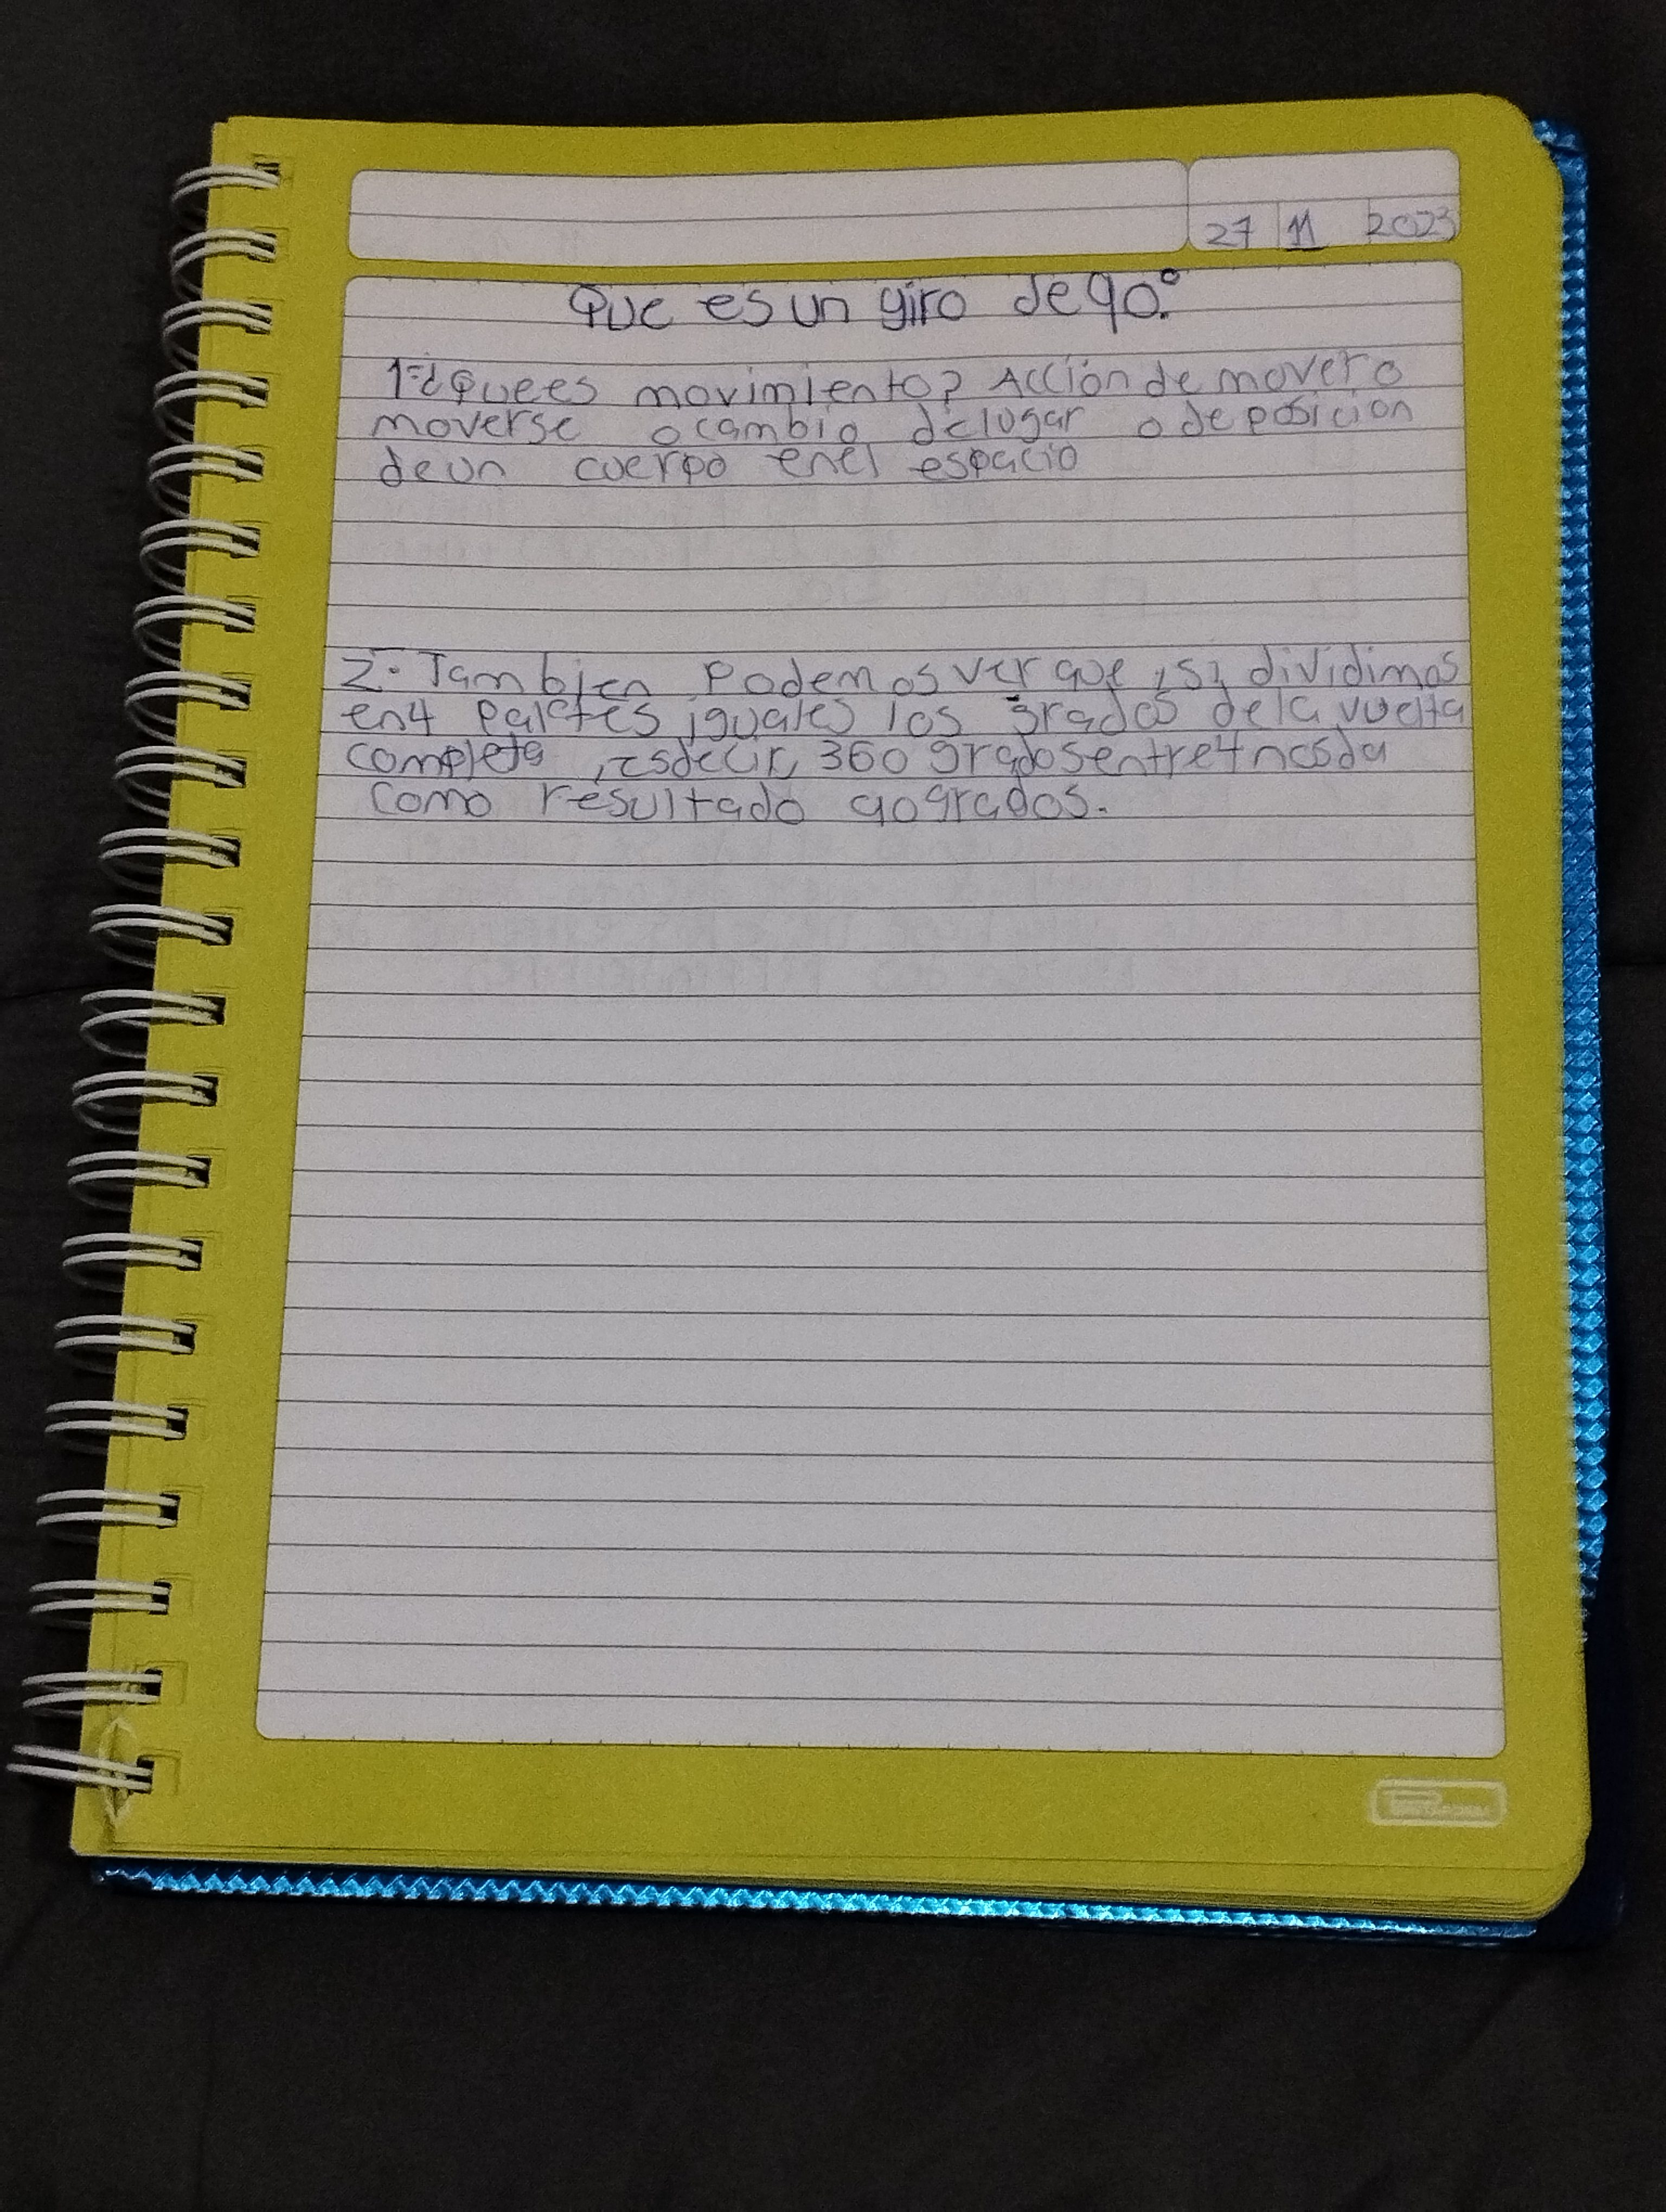 27 11 2023
Que es un giro de 90.°
1=¿Que es movimiento? Acción de mover o
moverse o cambio de lugar o de posicion
de un cuerpo en el espacio
2. Tambien Podemos ver que, si dividimos
en 4 partes iguales los grados de la vuelta
completa, es decir, 360 grados entre 4 nos da
como resultado 90 grados.